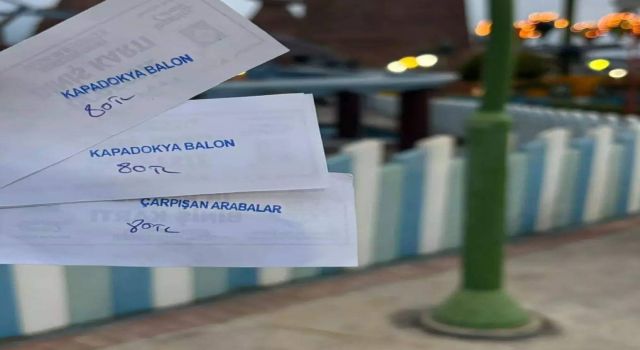 KAPADOKYA BALON
80TL
KAPADOKYA BALON
80TL
ÇARPIŞAN ARABALAR
80TL